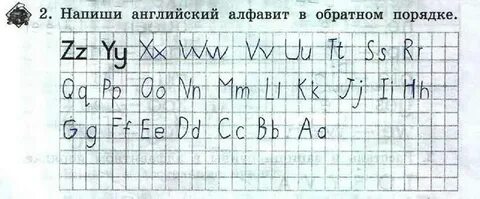 2. Напиши английский алфавит в обратном порядке.
Zz Yy Xx Ww Vv Uu Tt Ss Rr
Qq Pp Oo Nn Mm Ll Kk Jj Ii Hh
Gg Ff Ee Dd Cc Bb Aa